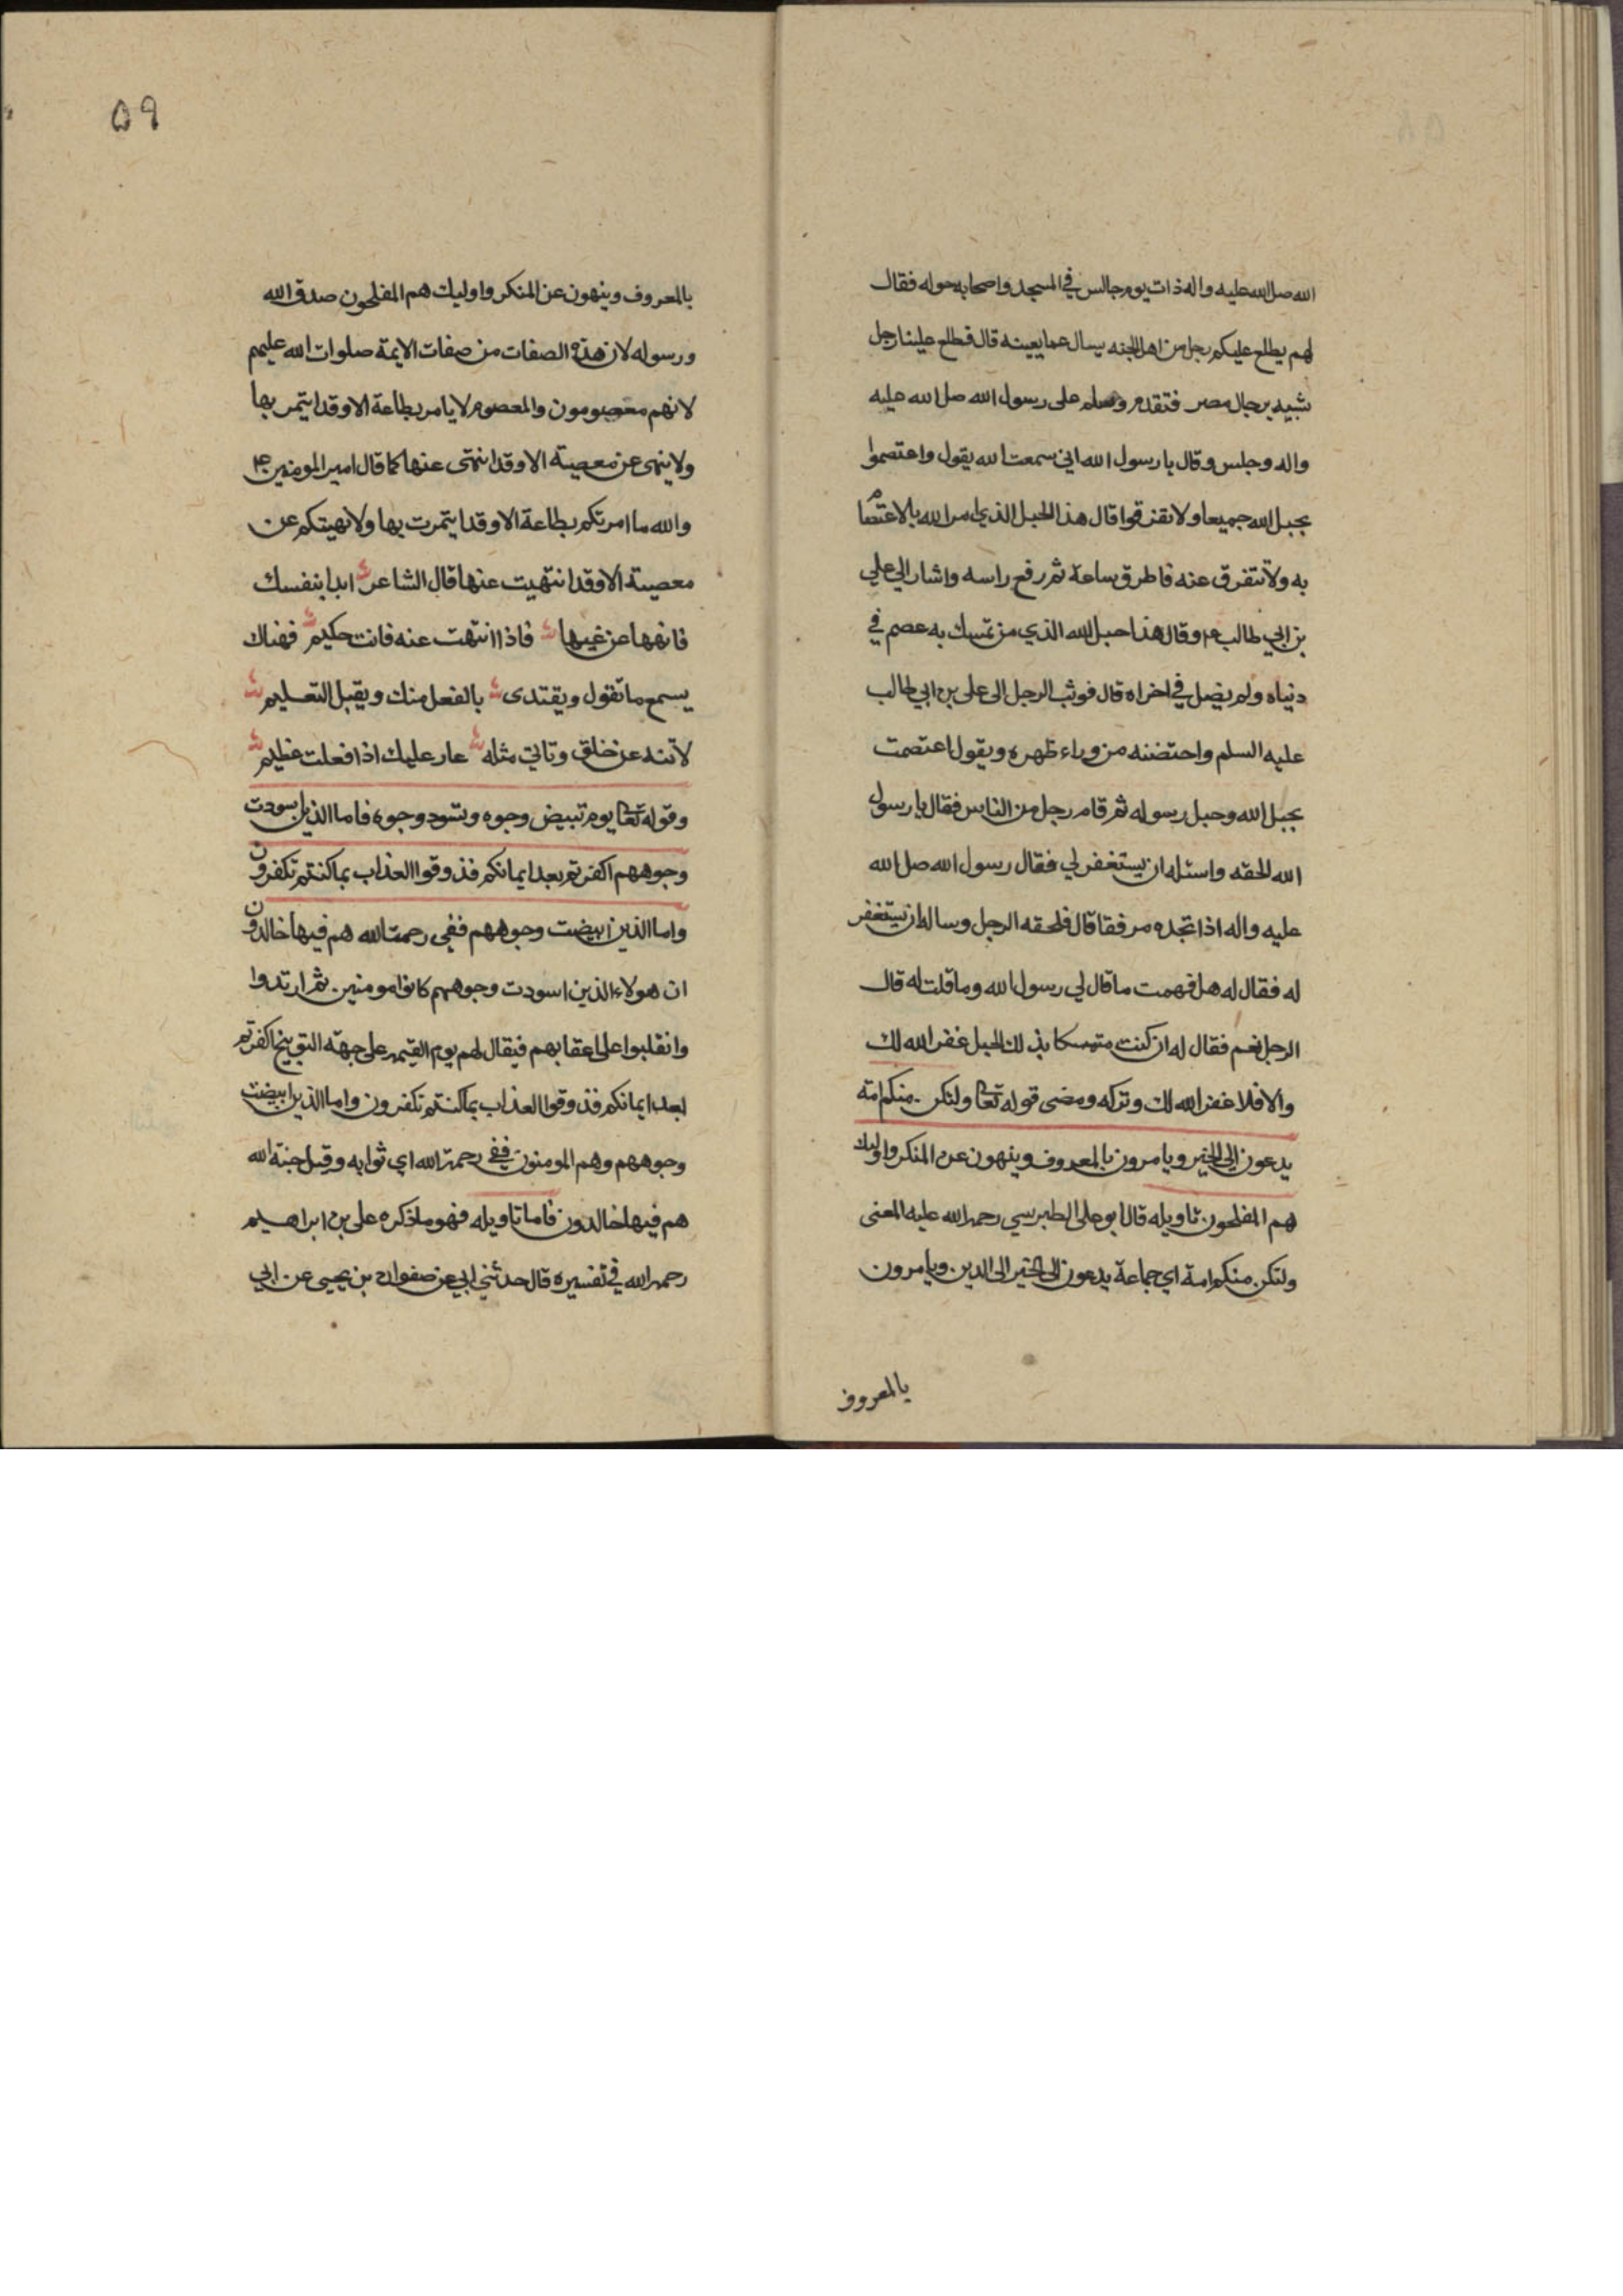 الله صل الله عليه واله ذات يوم جالس في المسجد واصحابه حوله فقال
لهم يطلع عليكم رجل من اهل الجنه يسال عما يعينه قال فطلع علينا رجل
شبيه برجال مصر فتقدم وسلم على رسول الله صل الله عليه
واله وجلس وقال يا رسول الله اني سمعت الله يقول واعتصموا
بحبل الله جميعا ولا تفرقوا قال هذا الحبل الذي امر الله بالاعتصام
به ولا نتفرق عنه فاطرق ساعة ثم رفع راسه واشار الى علي
بن ابي طالب ع م وقال هذا حبل الله الذي من تمسك به عصم في
دنياه ولم يضل في اخراه قال فوثب الرجل الى على بن ابي طالب
عليه السلم واحتضنه من وراء ظهره ويقول اعتصمت
بحبل الله وحبل رسوله ثم قام رجل من الناس فقال يا رسول
الله الحقه واسئله ان يستغفر لي فقال رسول الله صل الله
عليه واله اذا تجده مرفقا قال فلحقه الرجل وساله ان يستغفر
له فقال له هل فهمت ما قال لي رسول الله وما قلت له قال
الرجل نعم فقال له ان كنت متمسكا بذلك الحبل غفر الله لك
والا فلا غفر الله لك وتركه ومضى قوله تعا ولتكن منكم امة
يدعون الى الخير ويامرون بالمعروف وينهون عن المنكر واوليك
هم المفلحون تاويله قال ابو على الطبرسي رحمه الله عليه المعنى
ولتكن منكم امة اي جماعة يدعون الى الخير الى الدين ويامرون
بالمعروف
٥٩
بالمعروف وينهون عن المنكر واوليك هم المفلحون صدق الله
ورسوله لان هذه الصفات من صفات الايمة صلوات الله عليهم
لانهم معصومون والمعصوم لا يامر بطاعة الا وقد ايتمر بها
ولا ينهى عن معصية الا وقد انتهى عنها كما قال امير المومنين ع م
والله ما امرتكم بطاعة الا وقد ايتمرت بها ولا نهيتكم عن
معصية الا وقد انتهيت عنها قال الشاعر ابدا بنفسك
فانهها عن غيها فاذا انتهت عنه فانت حكيم فهناك
يسمع ما تقول ويقتدى بالفعل منك ويقبل التعليم
لا تنه عن خلق وتاتي مثله عار عليك اذا فعلت عظيم
وقوله تعا يوم تبيض وجوه وتسود وجوه فاما الذين اسودت
وجوههم اكفرتم بعد ايمانكم فذوقوا العذاب بما كنتم تكفرون
واما الذين ابيضت وجوههم ففي رحمت الله هم فيها خالدون
ان هولاء الذين اسودت وجوههم كانوا مومنين ثم ارتدوا
وانقلبوا على اعقابهم فيقال لهم يوم القيمه على جهة التوبيخ اكفرتم
بعد ايمانكم فذوقوا العذاب بما كنتم تكفرون واما الذين ابيضت
وجوههم وهم المومنون ففي رحمة الله اي ثوابه وقيل جنة الله
هم فيها خالدون فاما تاويله فهو ما ذكره على بن ابراهيم
رحمه الله في تفسيره قال حدثني ابي عن صفوان بن يحيى عن ابي